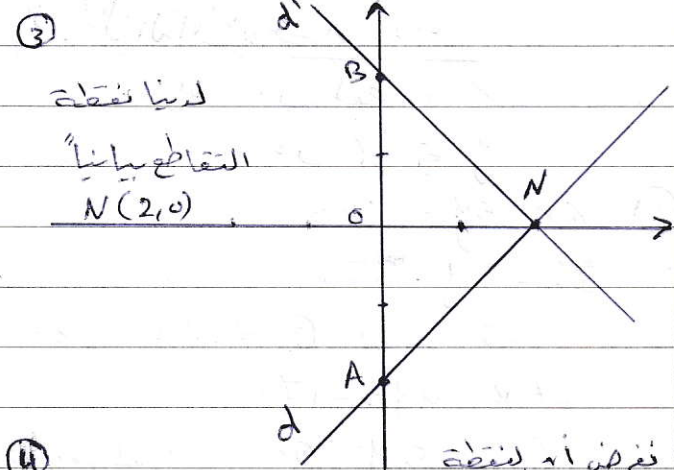 ③
d'
B
لدينا نقطة
التقاطع بيانياً
N
N(2,0)
0
A
d
④
نفرض أن لنقطة